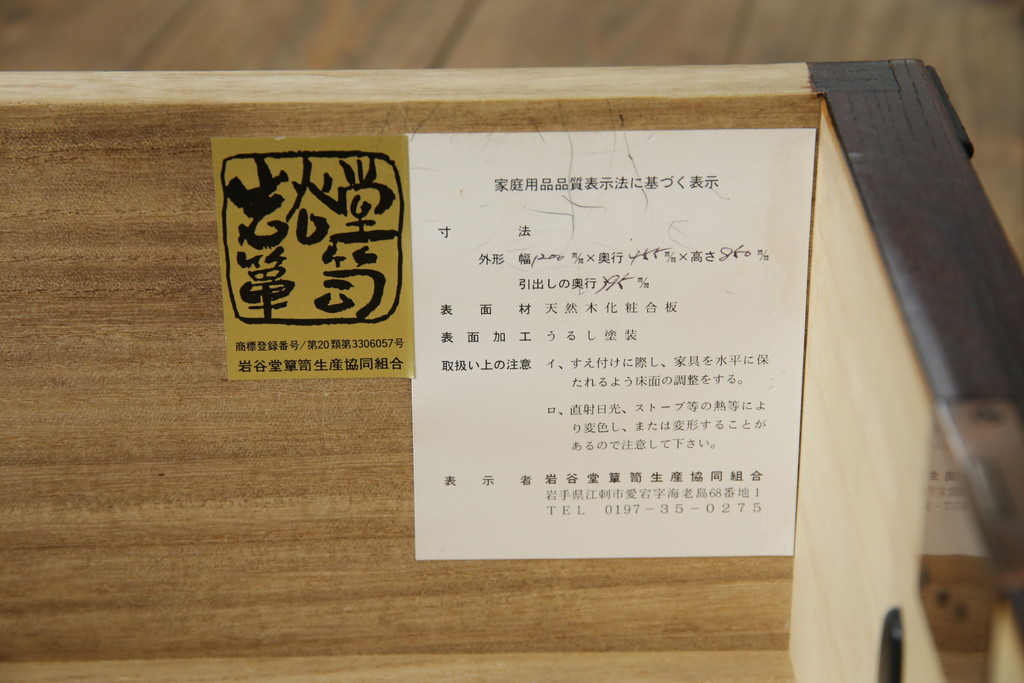 岩谷堂箪笥
商標登録番号/第20類第3306057号
岩谷堂箪笥生産協同組合
家庭用品品質表示法に基づく表示
寸法
外形 幅1200㎜×奥行455㎜×高さ850㎜
引出しの奥行395㎜
表面材 天然木化粧合板
表面加工 うるし塗装
取扱い上の注意 イ、すえ付けに際し、家具を水平に保
たれるよう床面の調整をする。
ロ、直射日光、ストーブ等の熱等によ
り変色し、または変形することが
あるので注意して下さい。
表示者 岩谷堂箪笥生産協同組合
岩手県江刺市愛宕字海老島68番地1
TEL 0197-35-0275